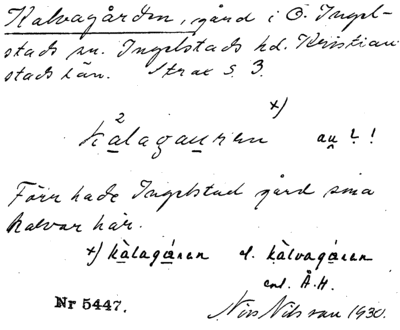 Kalvagården, gård i Ö. Ingel-
stads sn. Ingelstads hd. Kristian-
stads län. Strax S. 3.
x)
kạ²lagau̯ren au̯ ! !
Förr hade Ingelstad gård sina
kalvar här.
x) kàlagáren el. kàlvagáren
enl. Å.H.
Nr 5447.
Nils Nilsson 1930.